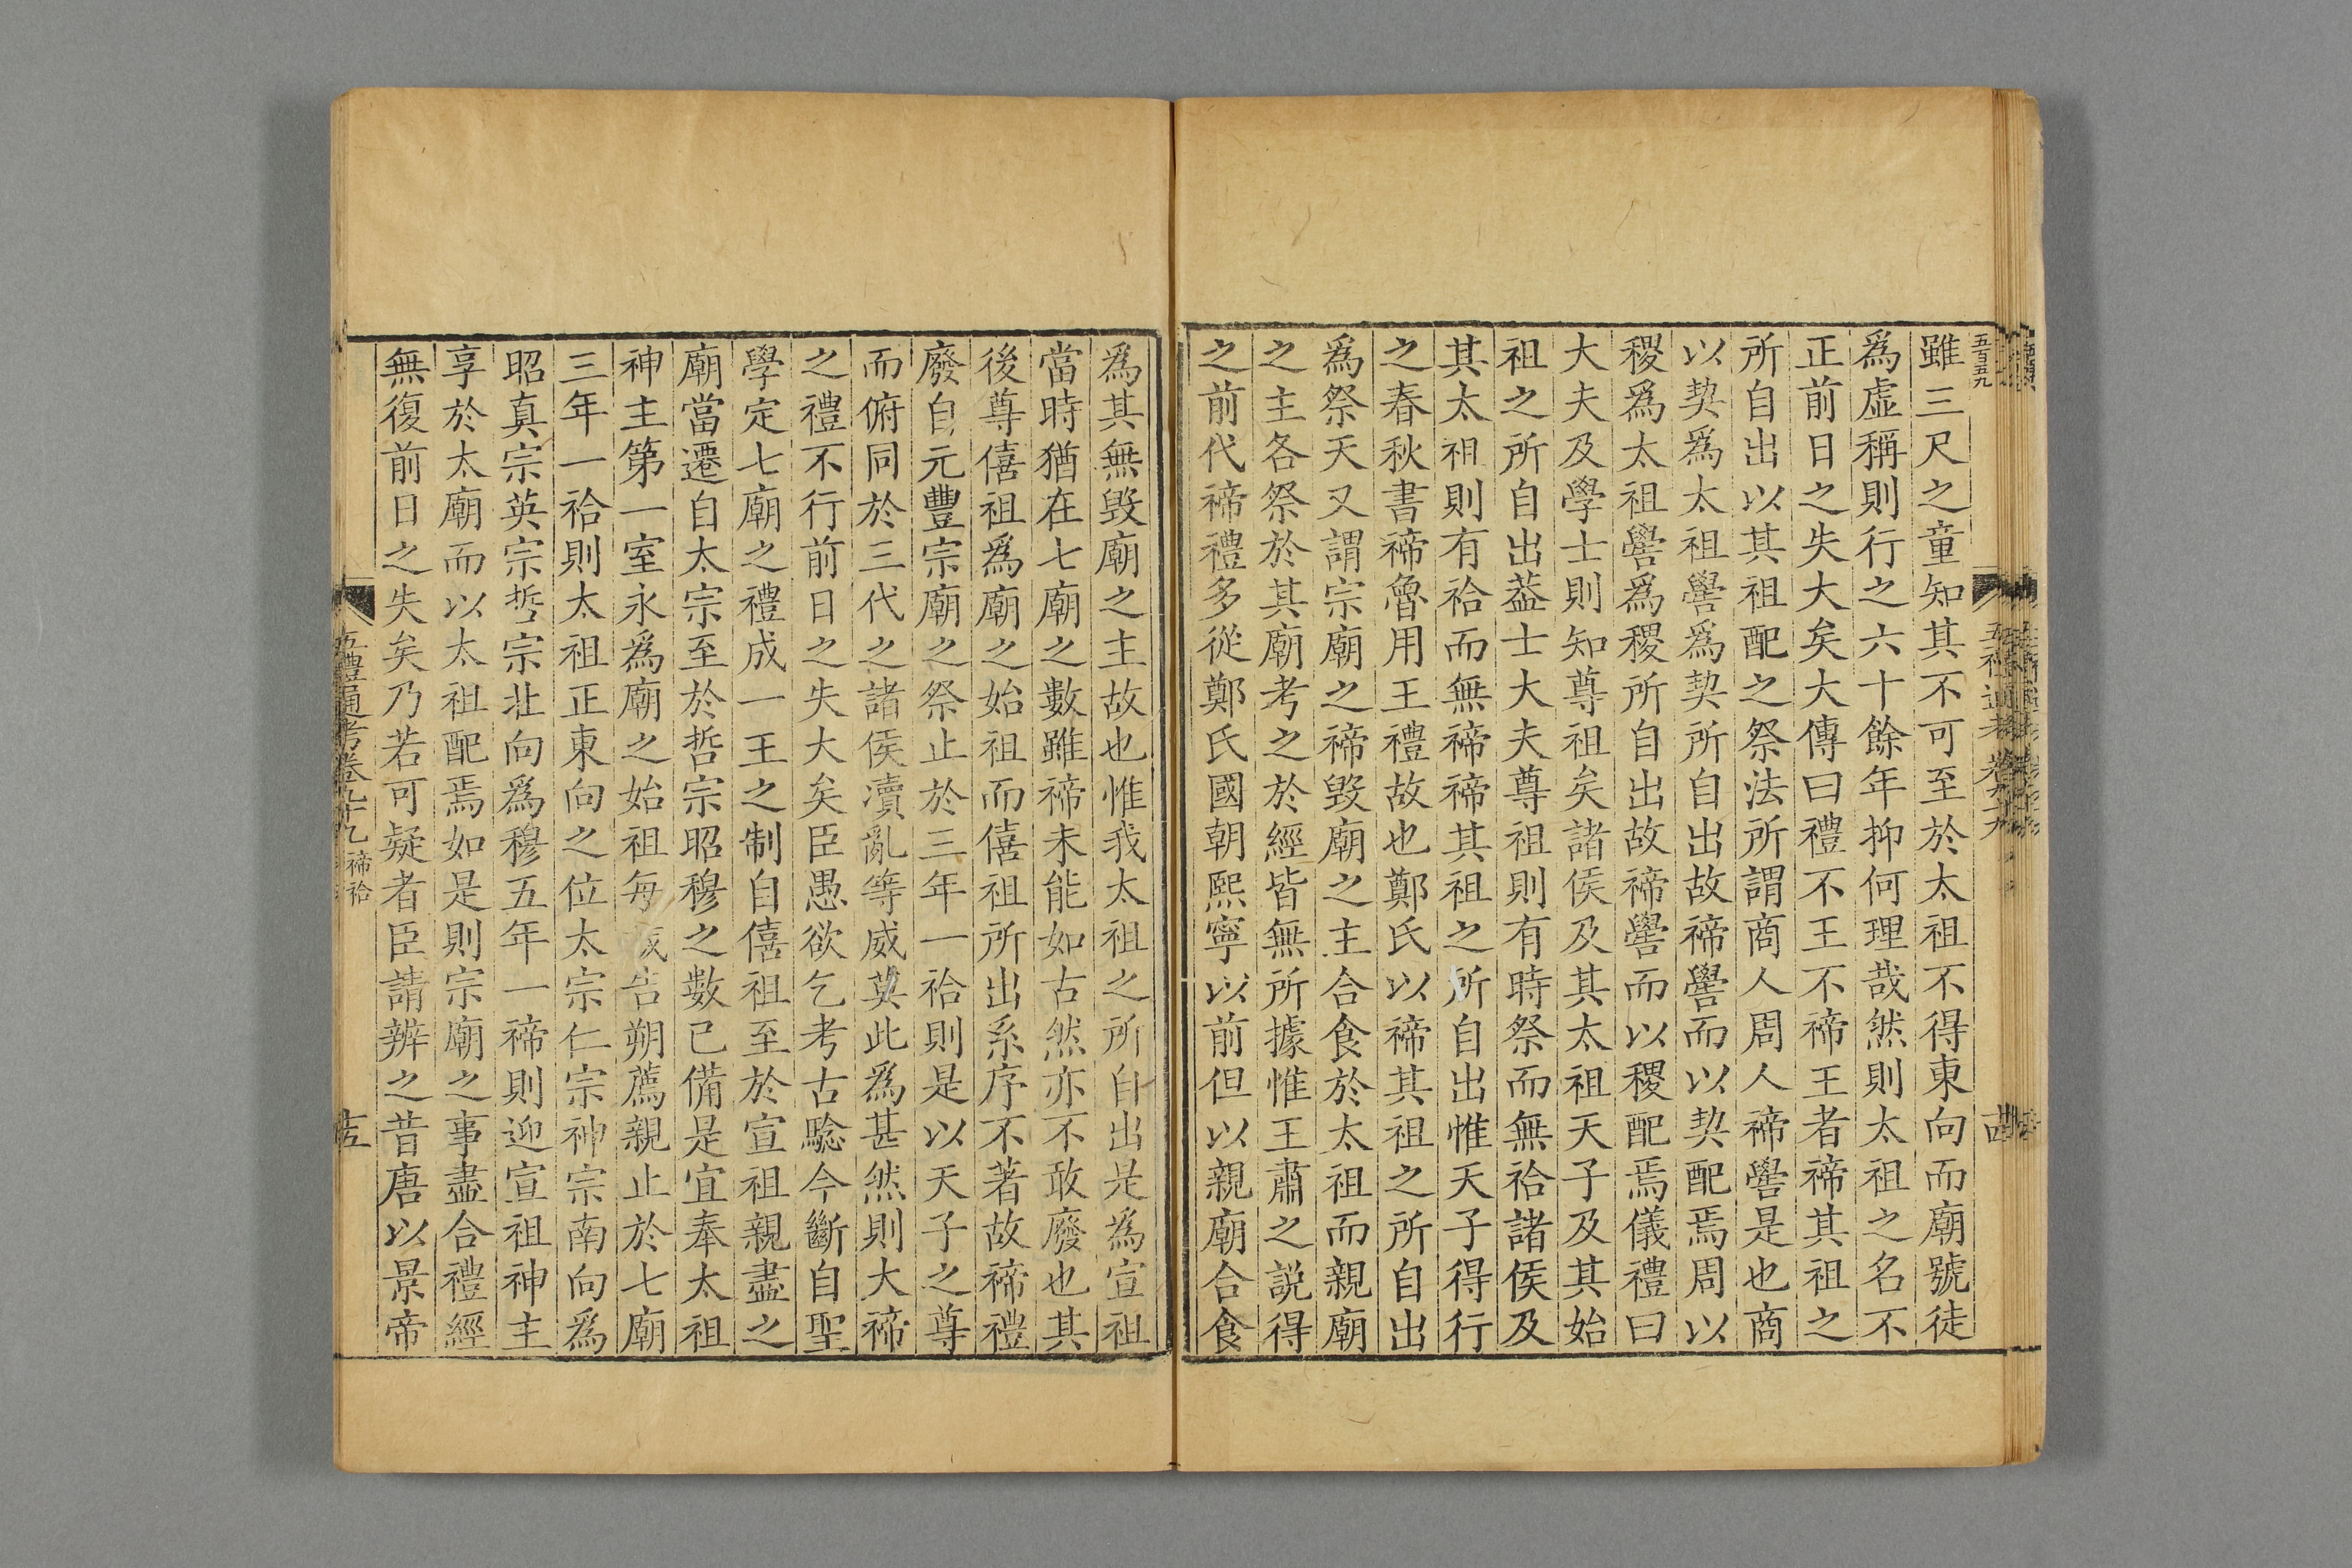 雖三尺之童知其不可至於太祖不得東向而廟號徒
為虛稱則行之六十餘年抑何理哉然則太祖之名不
正前日之失大矣大傳曰禮不王不禘王者禘其祖之
所自出以其祖配之祭法所謂商人周人禘嚳是也商
以契爲太祖嚳爲契所自出故禘嚳而以契配焉周以
稷爲太祖嚳爲稷所自出故禘嚳而以稷配焉儀禮曰
大夫及學士則知尊祖矣諸侯及其太祖天子及其始
祖之所自出葢士大夫尊祖則有時祭而無祫諸侯及
其太祖則有祫而無禘禘其祖之所自出惟天子得行
之春秋書禘魯用王禮故也鄭氏以禘其祖之所自出
爲祭天又謂宗廟之禘毀廟之主合食於太祖而親廟
之主各祭於其廟考之於經皆無所據惟王肅之説得
之前代禘禮多從鄭氏國朝熙寧以前但以親廟合食
為其無毀廟之主故也惟我太祖之所自出是為宣祖
當時猶在七廟之數雖禘未能如古然亦不敢廢也其
後尊僖祖爲廟之始祖而僖祖所出系序不著故禘禮
廢自元豐宗廟之祭止於三年一祫則是以天子之尊
而俯同於三代之諸侯瀆亂等威莫此為甚然則大禘
之禮不行前日之失大矣臣愚欲乞考古騐今斷自聖
學定七廟之禮成一王之制自僖祖至於宣祖親盡之
廟當遷自太宗至於哲宗昭穆之數已備是宜奉太祖
神主第一室永爲廟之始祖每歲告朔薦親止於七廟
三年一祫則太祖正東向之位太宗仁宗神宗南向為
昭真宗英宗哲宗北向爲穆五年一禘則迎宣祖神主
享於太廟而以太祖配焉如是則宗廟之事盡合禮經
無復前日之失矣乃若可疑者臣請辨之昔唐以景帝
五禮通考卷九十九 禘祫
十五